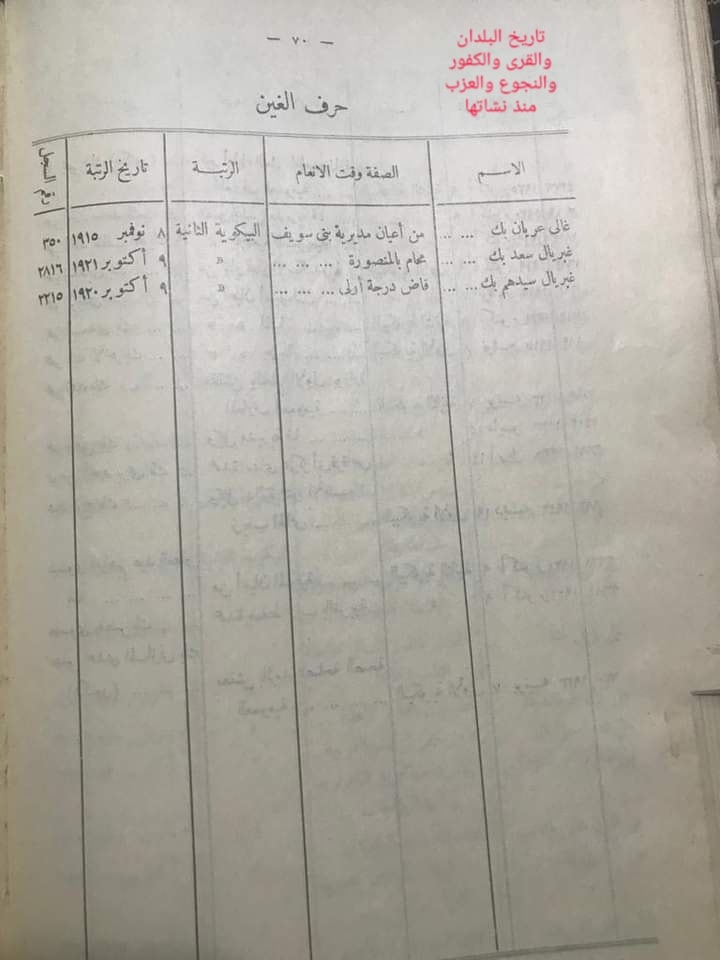 تاريخ البلدان
والقرى والكفور
والنجوع والعزب
منذ نشاتها
— ٧٠ —
حرف الغين
الاسم الصفة وقت الانعام الرتبة تاريخ الرتبة رقم السجل
غالى عريان بك ... ... من أعيان مديرية بنى سويف البيكوية الثانية ٨ نوفمبر ١٩١٥ ٣٥٠
غبريال سعد بك ... ... محام بالمنصورة ... ... ... « ٩ أكتوبر ١٩٢١ ٢٨١٦
غبريال سيدهم بك ... ... قاض درجة أولى ... ... ... « ٩ أكتوبر ١٩٢٠ ٢٢١٥